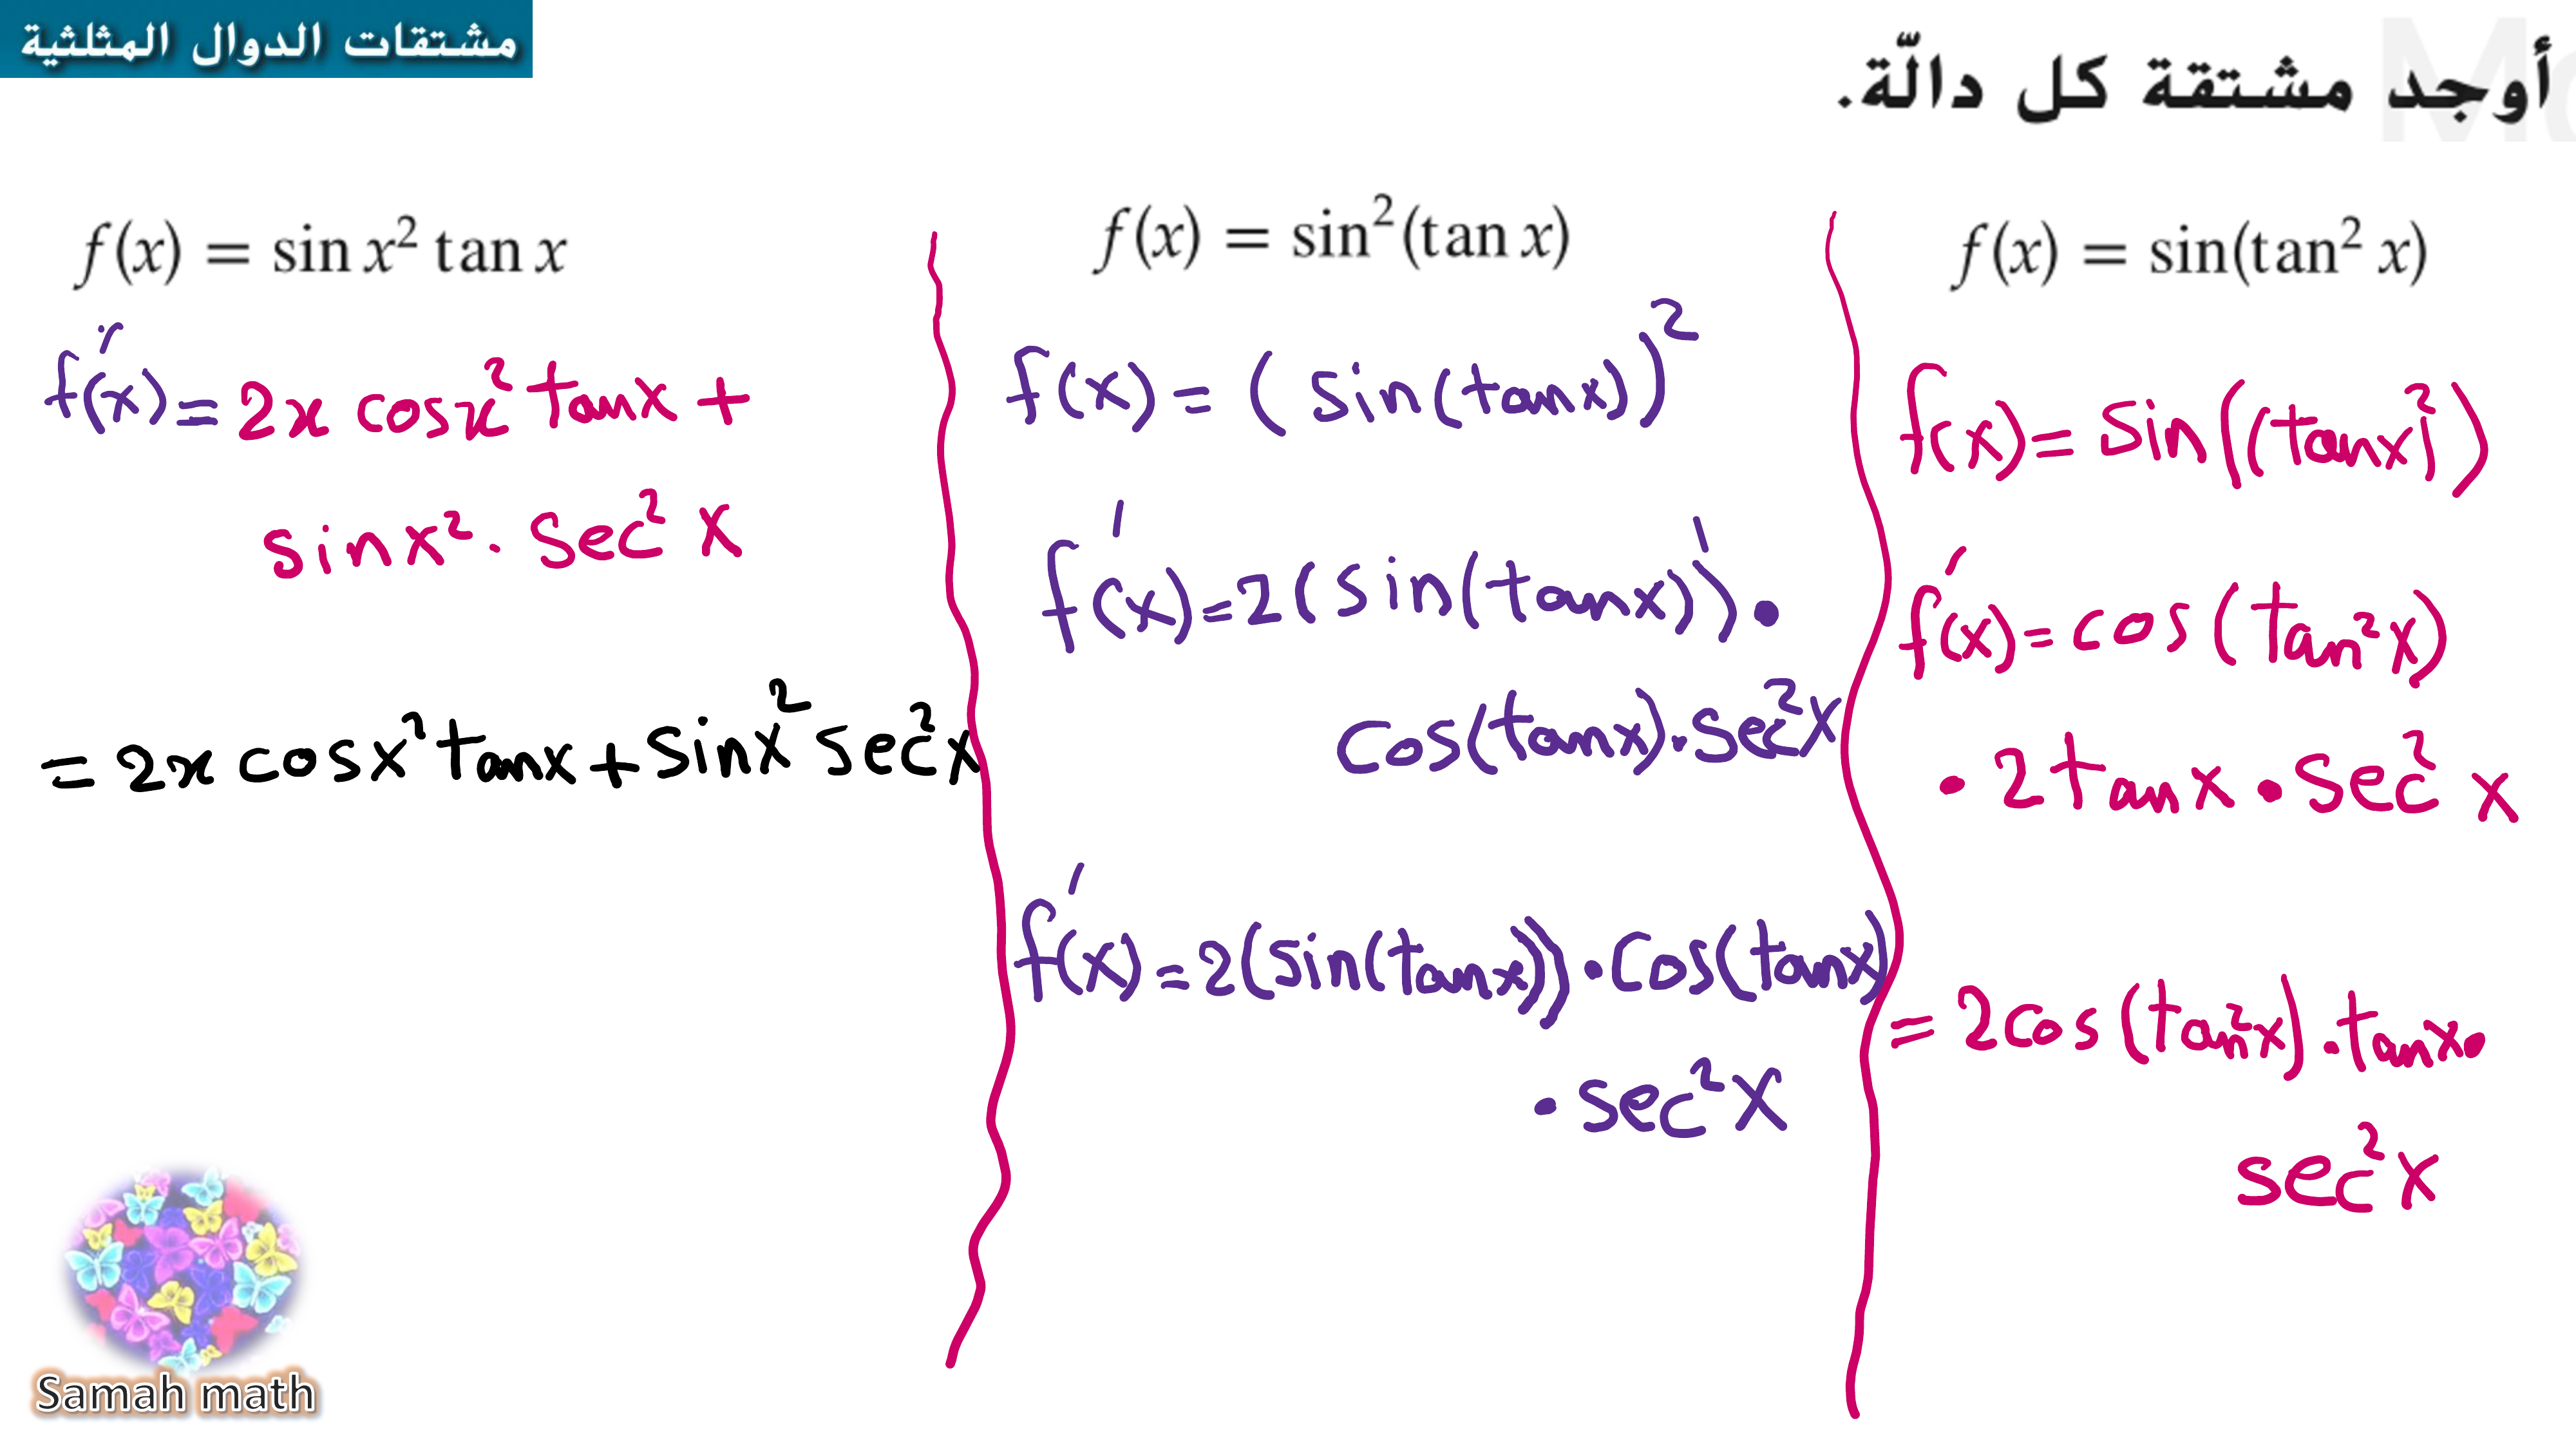 مشتقات الدوال المثلثية
أوجد مشتقة كل دالّة.
f(x) = sin x² tan x
f'(x) = 2x cos x² tan x +
sin x² · sec² x
= 2x cos x² tan x + sin x² sec² x
f(x) = sin² (tan x)
f(x) = (sin(tan x))²
f'(x) = 2(sin(tan x))' ·
cos(tan x) · sec² x
f'(x) = 2(sin(tan x)) · cos(tan x)
· sec² x
f(x) = sin(tan² x)
f(x) = sin((tan x)²)
f'(x) = cos(tan² x)
· 2 tan x · sec² x
= 2 cos(tan² x) · tan x ·
sec² x
Samah math